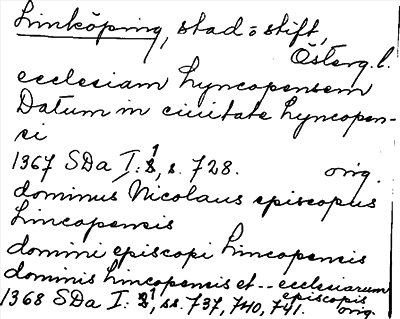 Linköping, stad = stift,
Österg. l.
ecclesiam Lyncopensem
Datum in ciuitate Lyncopen-
si
1367 SDa I: 1, s. 728. orig.
dominus Nicolaus episcopus
Lincopensis
domini episcopi Lincopensis
dominis Lincopensis et -- ecclesiarum
episcopis
1368 SDa I: 1, ss. 737, 740, 741. orig.